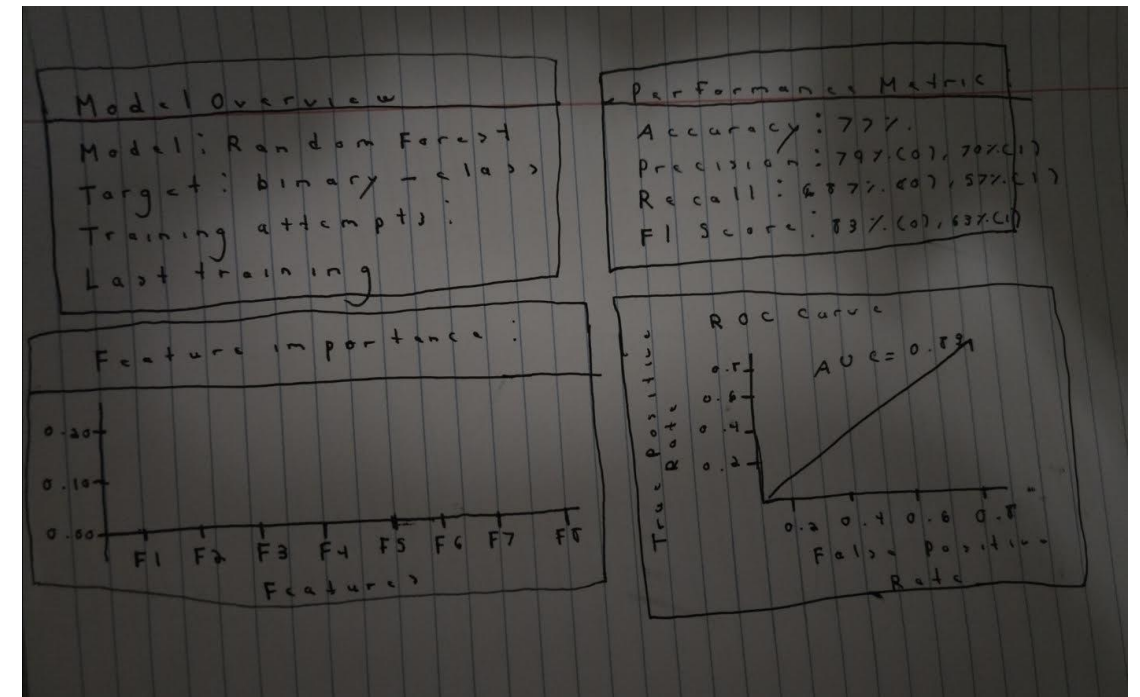 Model Overview
Model: Random Forest
Target: binary-class
Training attempts:
Last training
Performance Metric
Accuracy: 77%.
Precision: 79%(0), 70%(1)
Recall: 87%(0), 57%(1)
F1 Score: 83%(0), 63%(1)
Feature importance:
0.20
0.10
0.00
F1 F2 F3 F4 F5 F6 F7 F8
Features
ROC Curve
AUC=
True Positive
Rate
0.8
0.6
0.4
0.2
0.2 0.4 0.6 0.8
False Positive
Rate